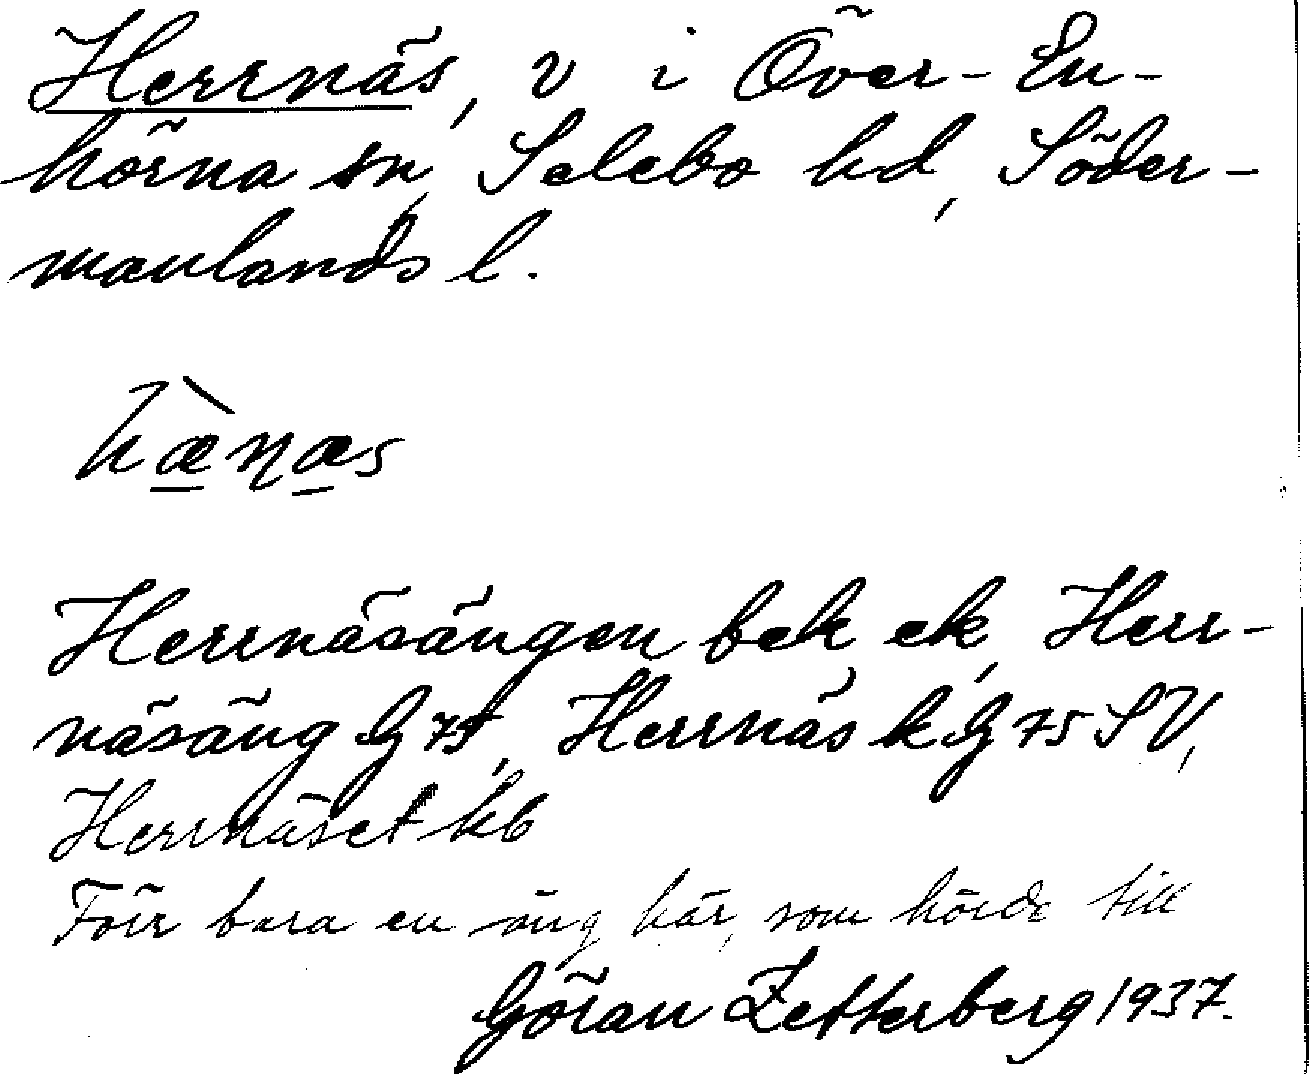 Herrnäs, v i Över-En-
hörna sn, Selebo hd, Söder-
manlands l.
hæ̀næs
Herrnäsängen bek, ek, Herr-
näsäng G 75, Herrnäs k G 75 SV,
Herrnäset kb
Förr bara en äng här, som hörde till
Göran Zetterberg 1937.